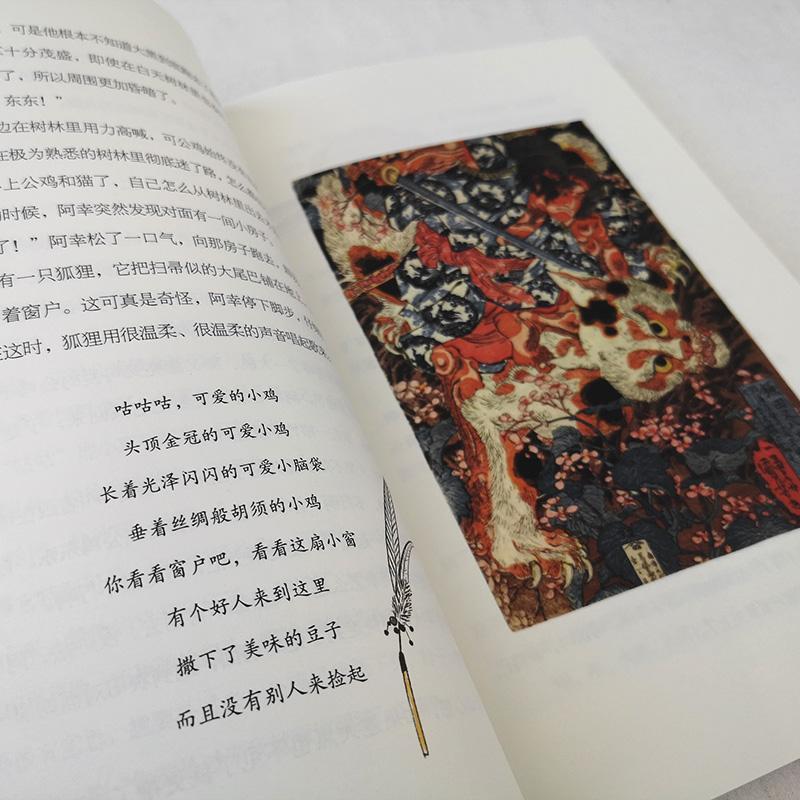 ，可是他根本不知道大熊到
十分茂盛，即使在白天树林里也
了，所以周围更加昏暗了。
东东！”
边在树林里用力高喊，可公鸡始终
在极为熟悉的树林里彻底迷了路，怎么
上公鸡和猫了，自己怎么从树林里出去
时候，阿幸突然发现对面有一间小房子。
了！”阿幸松了一口气，向那房子跑去，
有一只狐狸，它把扫帚似的大尾巴铺在地上
着窗户。这可真是奇怪，阿幸停下脚步，
在这时，狐狸用很温柔、很温柔的声音唱起歌来
咕咕咕，可爱的小鸡
头顶金冠的可爱小鸡
长着光泽闪闪的可爱小脑袋
垂着丝绸般胡须的小鸡
你看看窗户吧，看看这扇小窗
有个好人来到这里
撒下了美味的豆子
而且没有别人来捡起